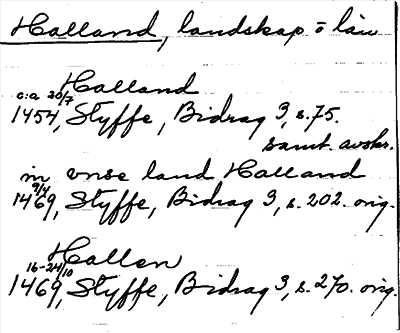 Halland, landskap o län
Halland
c:a 20/7
1454, Styffe, Bidrag 3, s. 75.
samt. avskr.
in vnse land Halland
9/4
1469, Styffe, Bidrag 3, s. 202. orig.
Hallen
16-24/10
1469, Styffe, Bidrag 3, s. 270. orig.